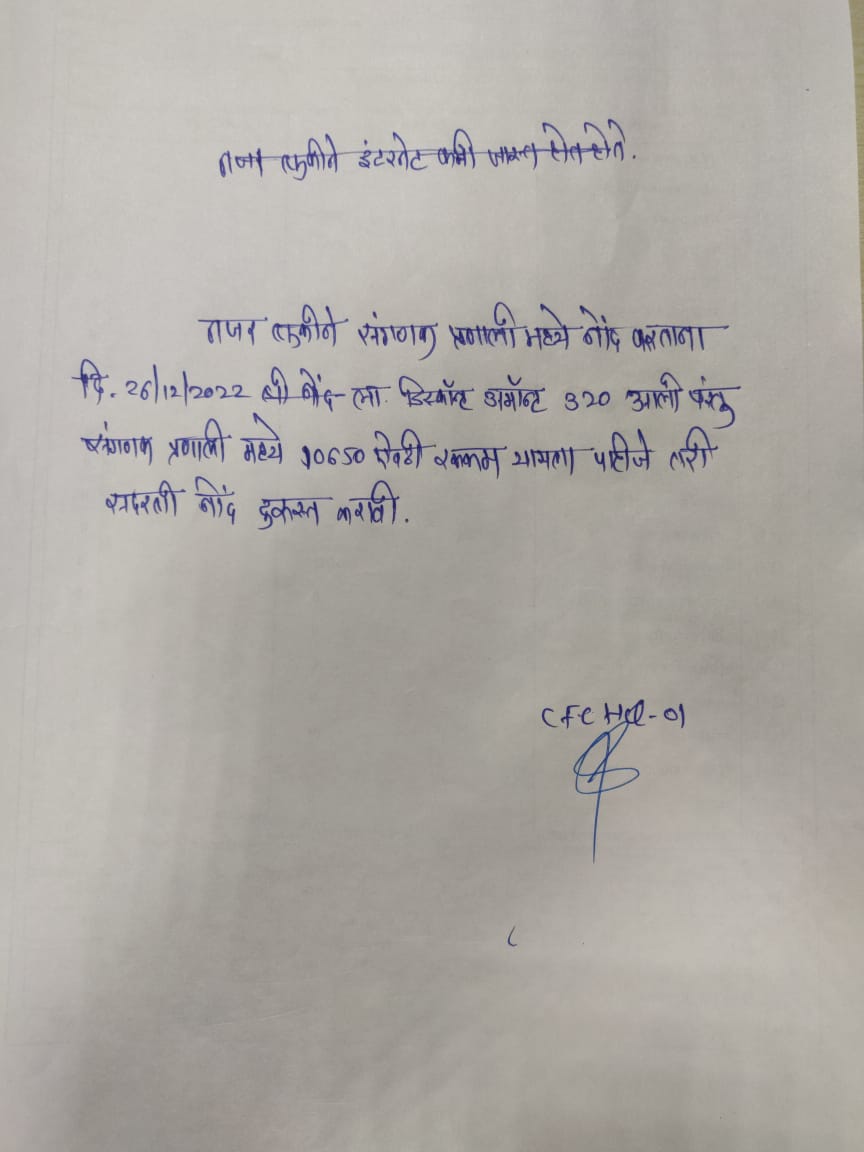 नजर चुकीने इंटरनेट कमी जास्त होत होते.
नजर चुकीने संगणक प्रणाली मध्ये नोंद करताना
दि. 26/12/2022 ची नोंद ला. डिस्कॉन्ट अमॉन्ट 320 आली परंतु
संगणक प्रणाली मध्ये 10650 ऐवढी रक्कम यायला पाहीजे तरी
सदरली नोंद दुरुस्त करावी.
CFC HQ-01